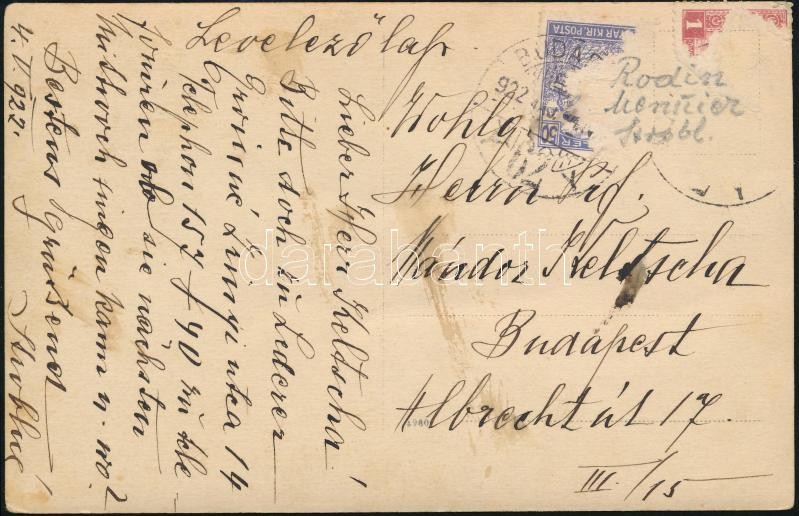 Levelezőlap.
Lieber Herr Keltscha!
Bitte doch in Lederer
Ervinné Lónyi utca 14
Telephon 157 f 40 zu tele-
foniren ob sie nächsten
Mittwoch singen kann u. wo?
Bestens Grüßend
4. V. 922.
Wohlg
Herrn
Nándor Keltscha
Budapest
Albrecht út 17.
III./15
Rodin
Meunier
Strobl.
YAR KIR. POSTA
50
1
BUDAPEST
922
4960
darabanth